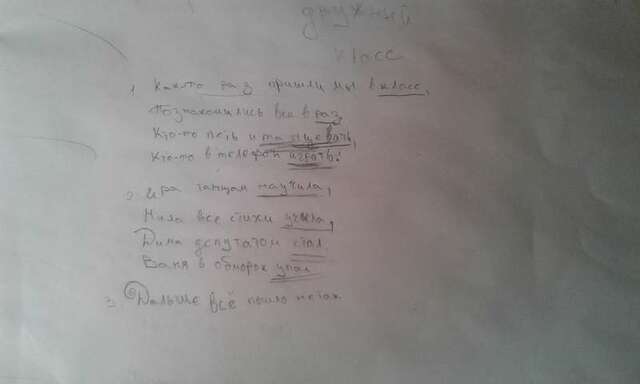 дружный
класс
1. Как-то раз пришли мы в класс,
Познакомились все в раз,
Кто-то петь и танцевать,
Кто-то в телефон играть!
2. Ира танцам научила,
Мила все стихи учила,
Дима депутатом стал
Ваня в обморок упал
3 Дальше всё пошло не так